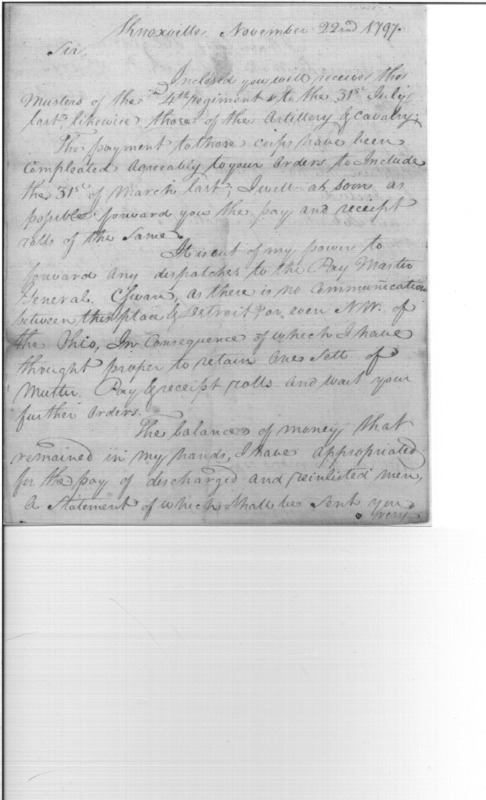 Knoxville, November 22nd 1797.
Sir
Inclosed you will receive the
Musters of the 4th regiment to the 31st July
last, likewise those of the Artillery & Cavalry;
The payment to those corps have been
Compleated Agreeably to your Orders to Include
the 31st of March last; I will as soon as
possible forward you the pay and receipt
rolls of the Same.
It is out of my power to
forward any dispatches to the Pay Master
General C. Swan, as there is no Communication
between this place & Detroit or, even NW. of
the Ohio, In Consequence of which I have
thought proper to retain One Sett of
Muster. Pay & receipt rolls and wait your
further Orders.
The balance of money that
remained in my hands, I have appropriated
for the pay of discharged and reinlisted men,
a Statement of which shall be Sent you
very